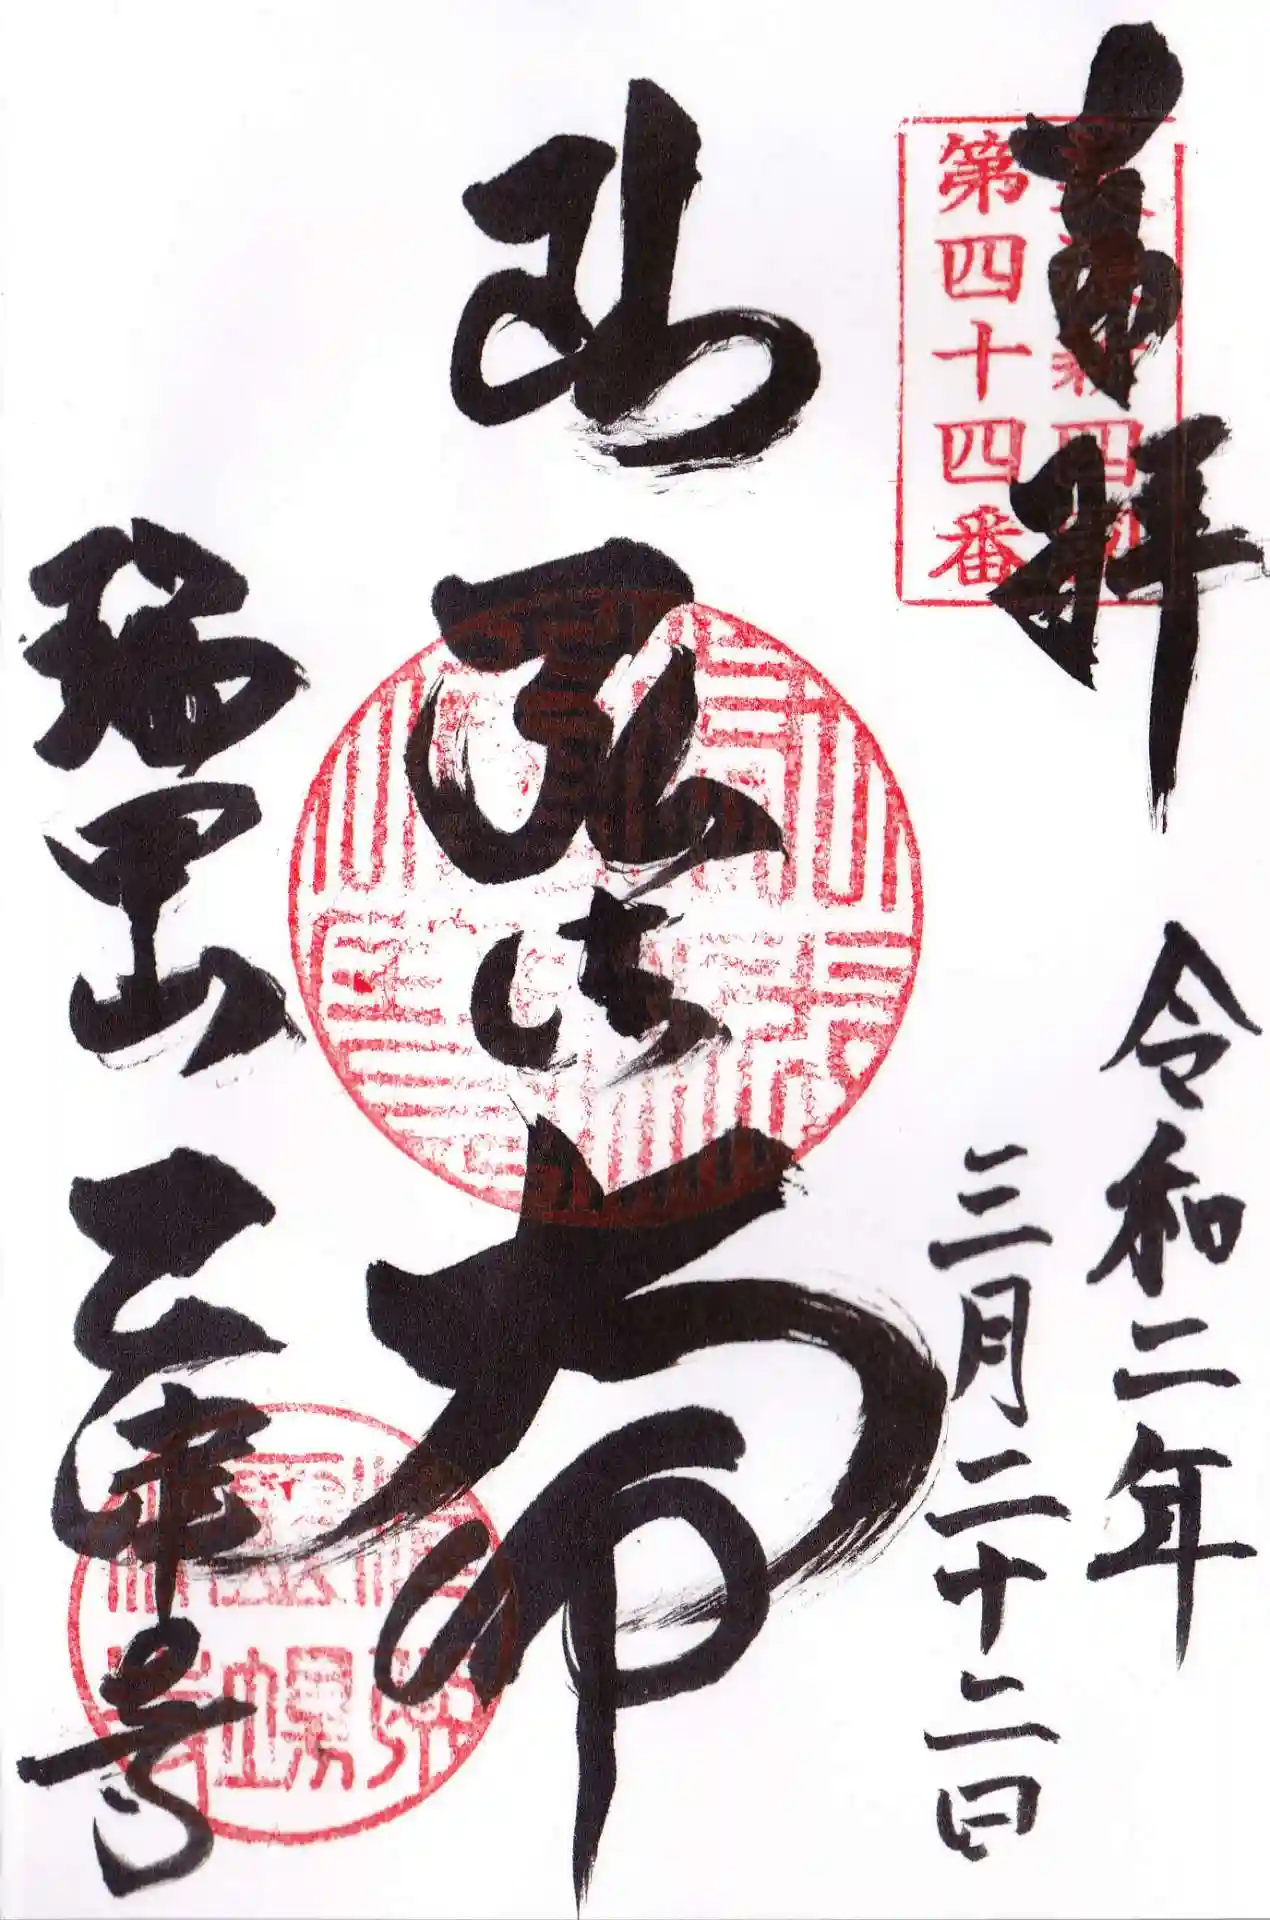 奉拝
美濃新四国
第四十四番
令和二年
三月二十二日
弘法大師
瑞甲山 乙津寺